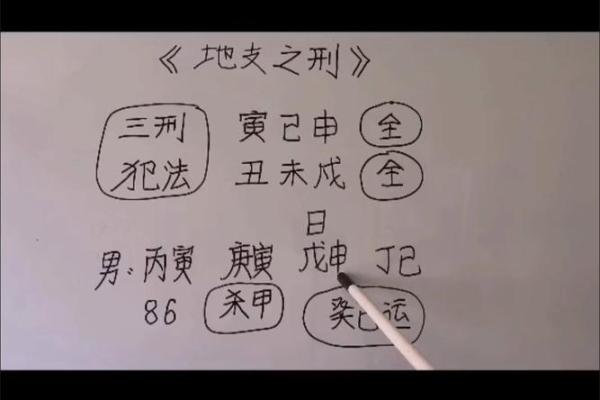 《地支之刑》
三刑 寅巳申 全
犯法 丑未戌 全
日
男：丙寅 庚寅 戊申 丁巳
86 杀甲 癸巳运